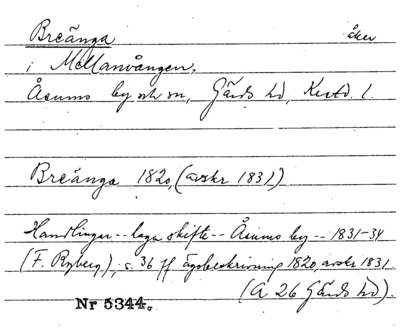 Breänga åker
i Mellanvången,
Åsums by och sn, Gärds hd, Krstd. l.
Breänga 1820, (avskr 1831)
Handlingar -- laga skifte -- Åsums by -- 1831-34
(F. Ryberg), s. 36 ff ägobeskrivning 1820, avskr 1831
(A 26 Gärds hd).
Nr 5344.